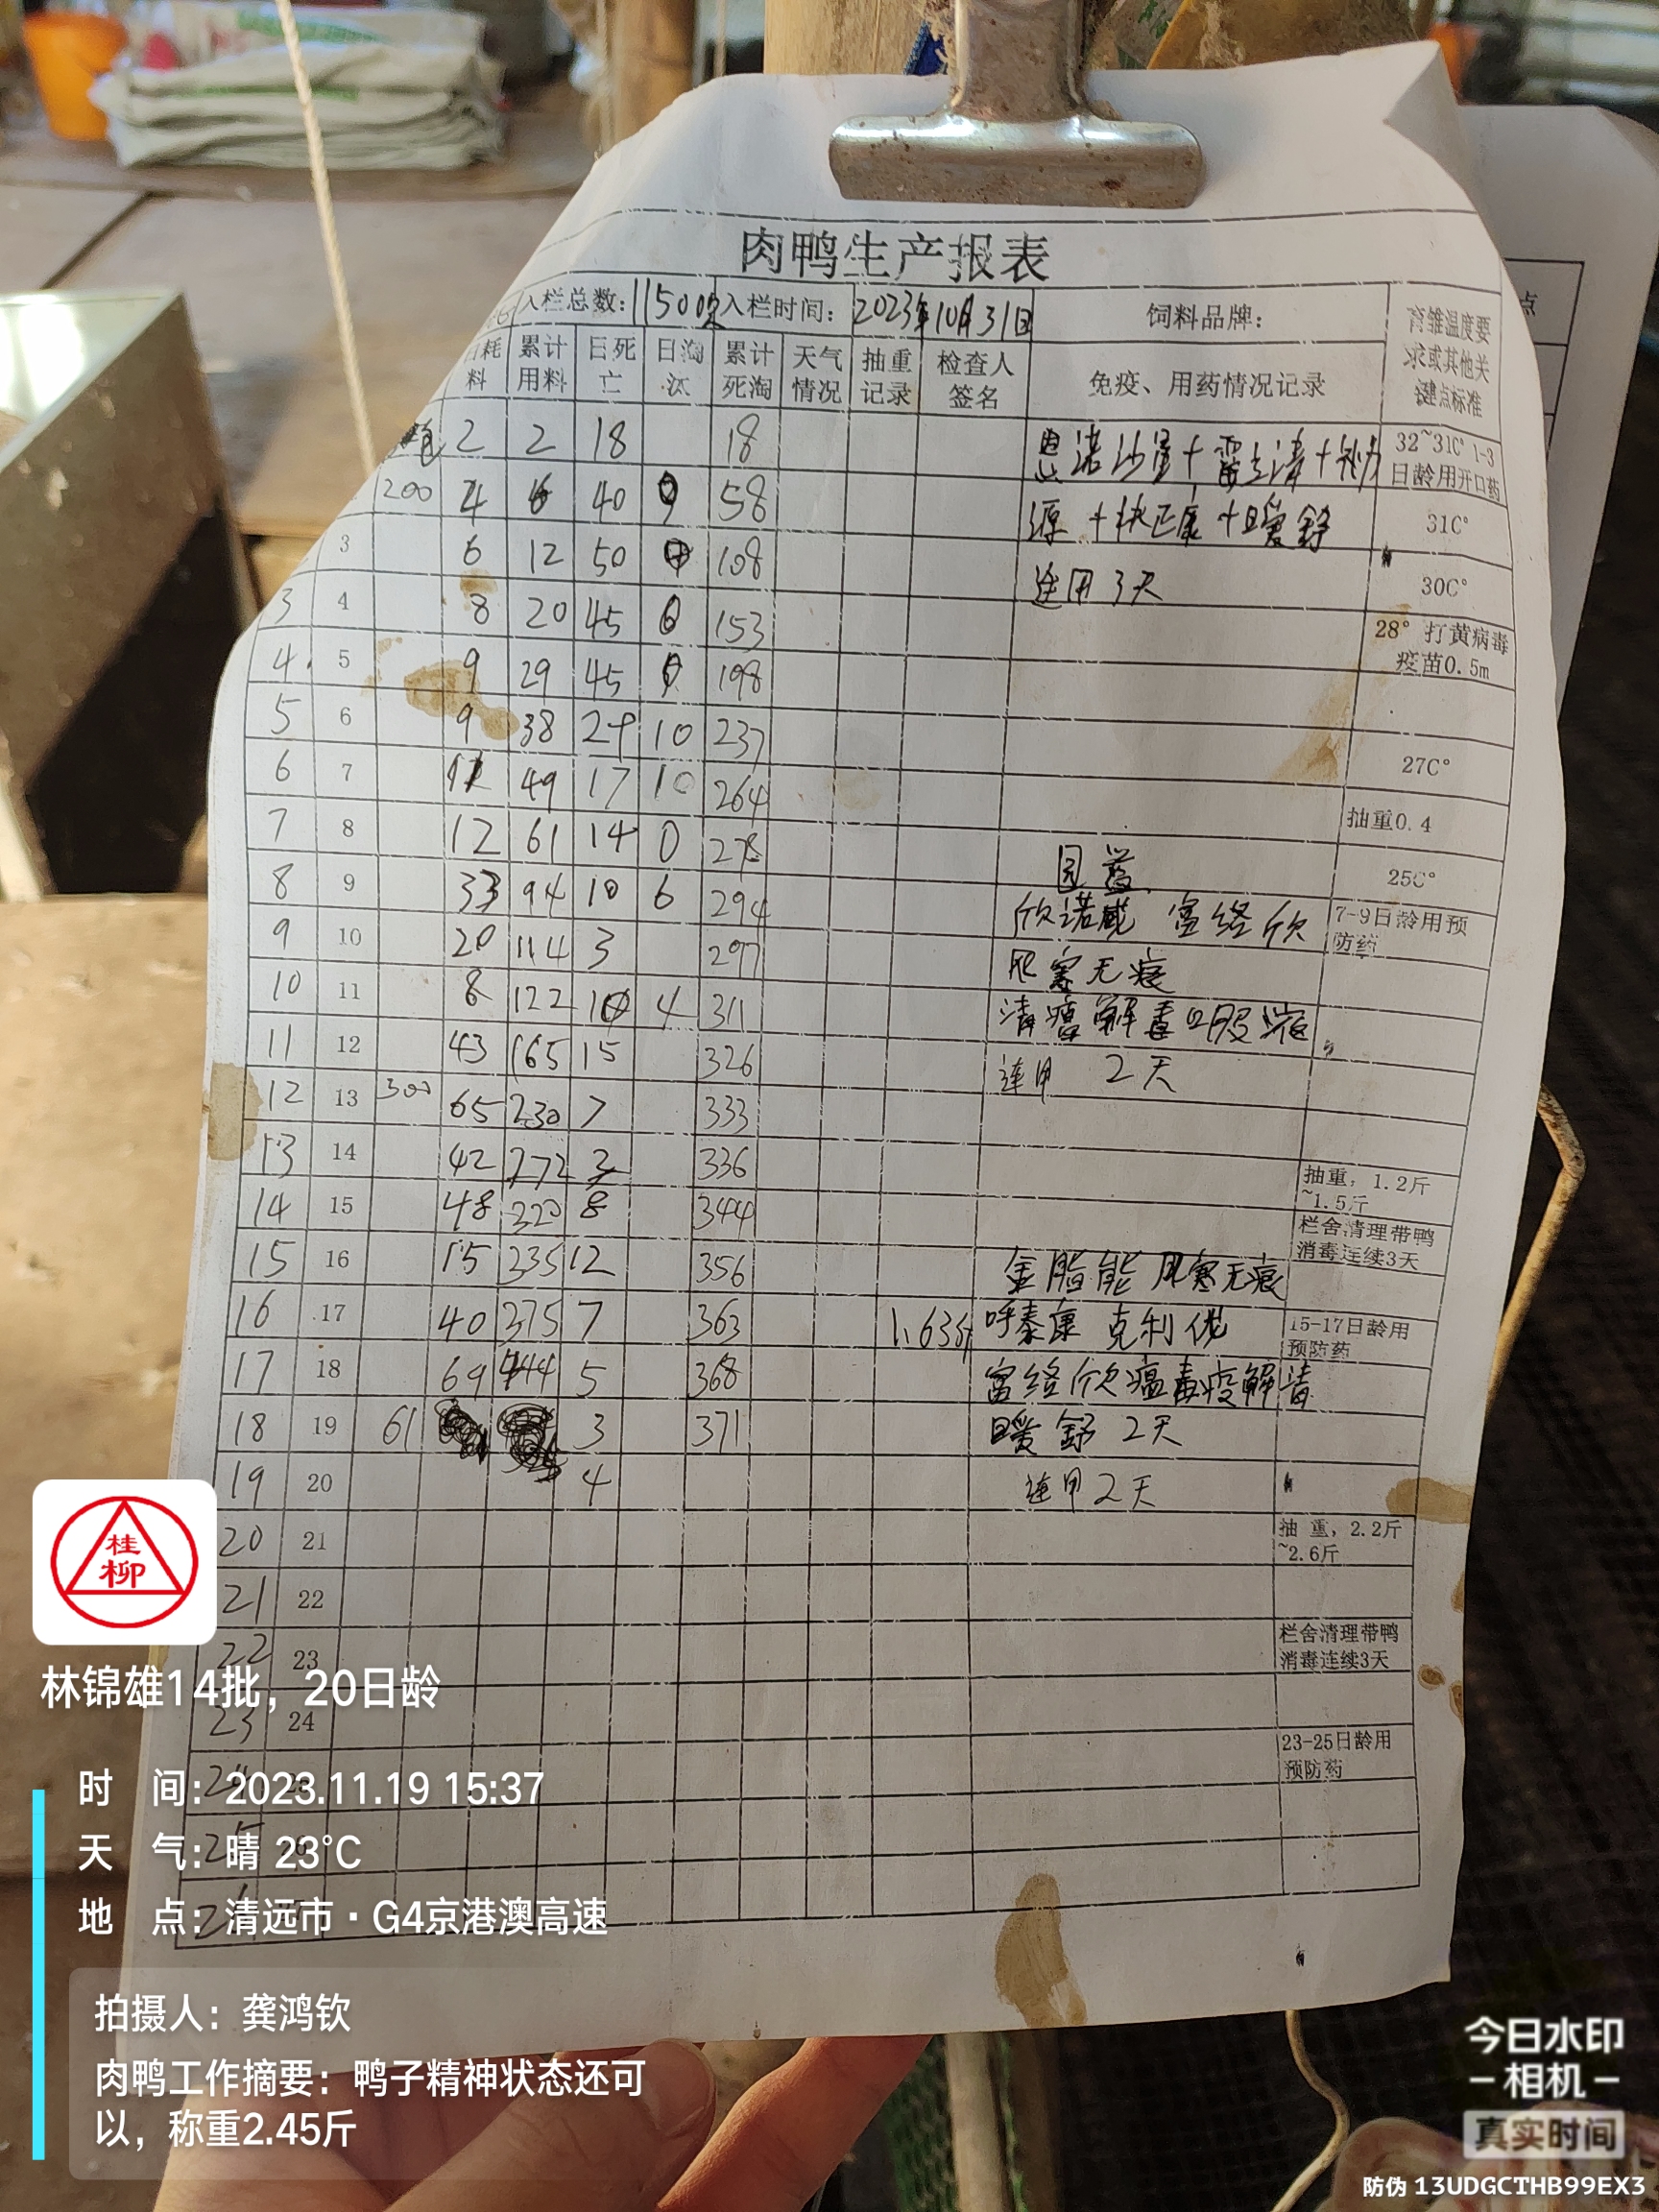 肉鸭生产报表
入栏总数: 11500只 入栏时间: 2023年10月31日 饲料品牌: 育雏温度要求或其他关键点标准
日耗料 累计用料 日死亡 日淘汰 累计死淘 天气情况 抽重记录 检查人签名 免疫、用药情况记录
2 2 18 18 32~31C° 1-3日龄用开口药
200 4 6 40 0 58 源+快正康+暖舒 31C°
3 6 12 50 0 108 连用3天 30C°
3 4 8 20 45 0 153 28° 打黄病毒疫苗0.5m
4 5 9 29 45 0 198
5 6 9 38 29 10 237 27C°
6 7 11 49 17 10 264 抽重0.4
7 8 12 61 14 0 278 25C°
8 9 33 94 10 6 294 欣诺威 富络欣 7-9日龄用预防药
9 10 20 114 3 297 风寒无痕
10 11 8 122 10 4 311 清瘟解毒口服液
11 12 43 165 15 326 连用 2天
12 13 300 65 230 7 333
13 14 42 272 3 336 抽重，1.2斤~1.5斤
14 15 48 320 8 344 栏舍清理带鸭消毒连续3天
15 16 15 335 12 356 金脂能 风寒无痕
16 17 40 375 7 363 呼泰康 克利优 15-17日龄用预防药
17 18 69 444 5 368 富络欣瘟毒疫解清
18 19 61 3 371 暖舒 2天
19 20 4 连用2天
20 21 抽 重，2.2斤~2.6斤
21 22
22 23 栏舍清理带鸭消毒连续3天
23 24
23-25日龄用预防药
桂柳
林锦雄14批，20日龄
时 间：2023.11.19 15:37
天 气：晴 23°C
地 点：清远市·G4京港澳高速
拍摄人：龚鸿钦
肉鸭工作摘要：鸭子精神状态还可
以，称重2.45斤
今日水印
相机
真实时间
防伪 13UDGCTHB99EX3